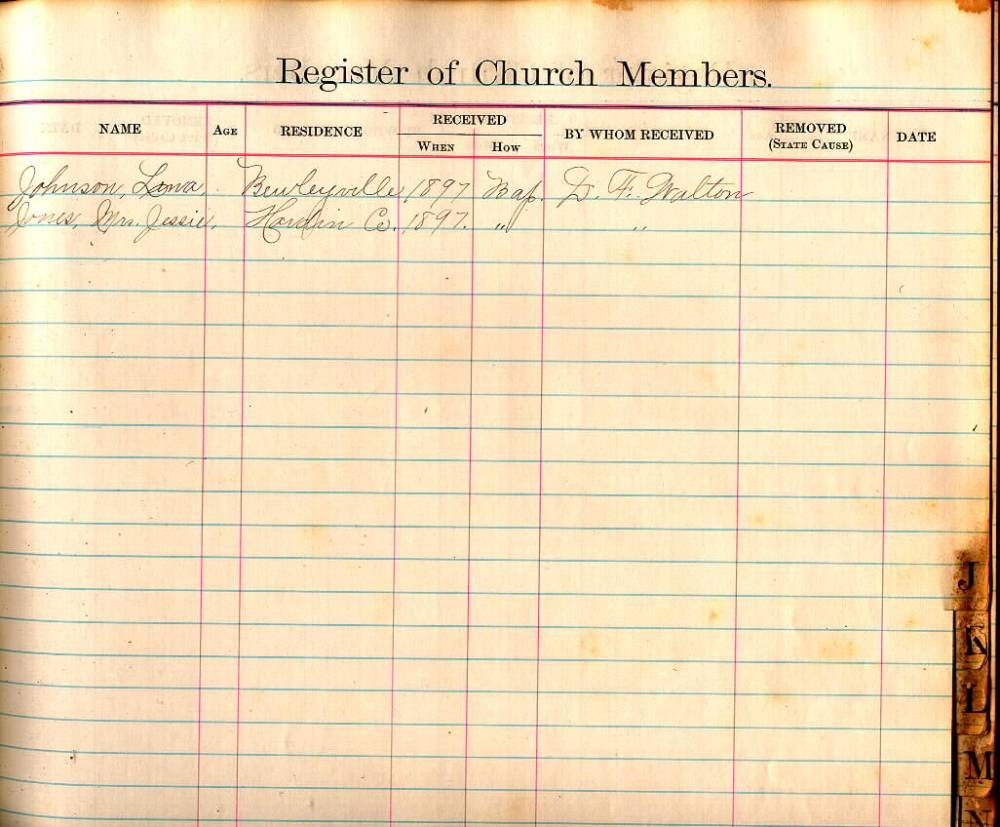 Register of Church Members.
NAME AGE RESIDENCE RECEIVED BY WHOM RECEIVED REMOVED DATE
WHEN HOW (STATE CAUSE)
Johnson, Lana Bewleyville 1897 Bap. D. F. Walton
Jones, Mrs. Jessie, Hardin Co. 1897. " "
J
K
L
M
N